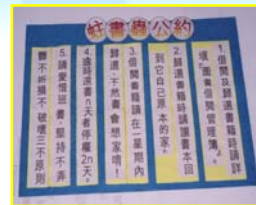 好書蟲公約
1.借閱及歸還書籍時請詳
填「圖書借閱管理簿」。
2.歸還書籍時請讓書本回
到它自己原本的家。
3.借閱書籍請在一星期內
歸還,不然書會想家唷!
4.逾時還書n天者停權2n天。
5.請愛惜班書,堅持不弄
髒不折損不破壞三不原則